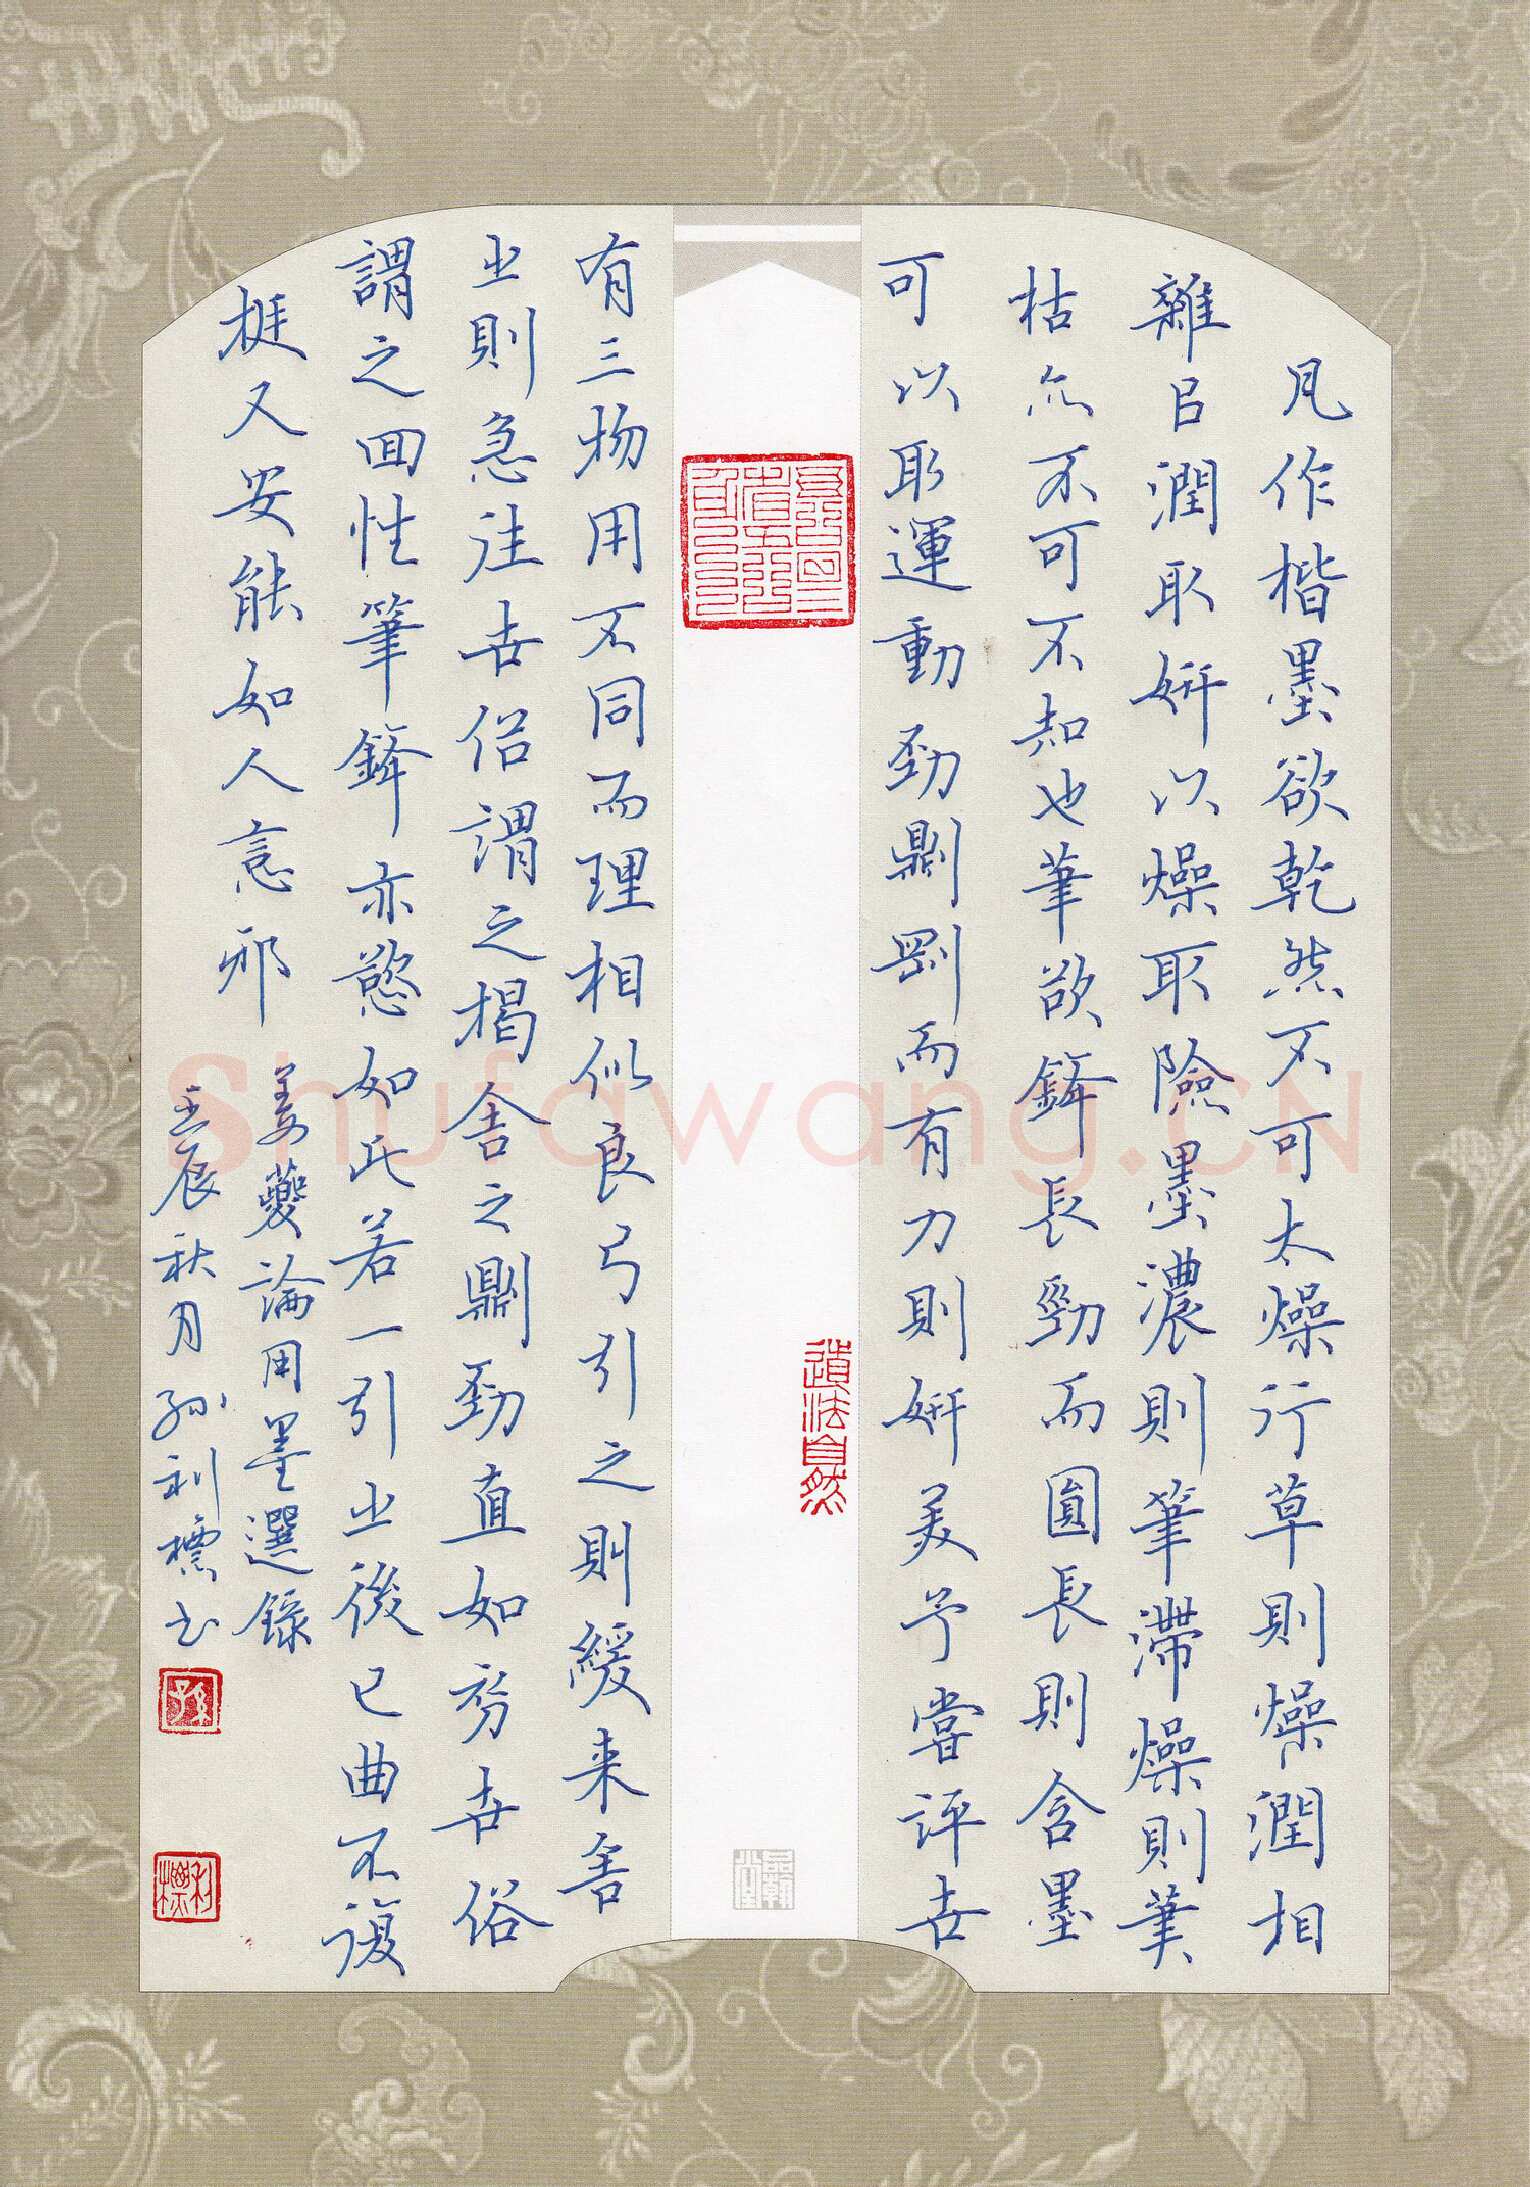 凡作楷墨欲乾然不可太燥行草則燥潤相
雜吕潤取妍以燥取險墨濃則筆滯燥則筆
枯亦不可不知也筆欲鋒長勁而圓長則含墨
可以取運動勁則剛而有力則妍美予嘗評世
有三物用不同而理相似良弓引之則緩来舍
之則急往世俗謂之揭舍之則勁直如初世俗
謂之回性筆鋒亦慾如此若一引之後已曲不復
挺又安能如人意邪
姜夔論用墨選錄
壬辰秋月孫利標书
孫
利標
道法自然
品翰堂
Shufawang.CN